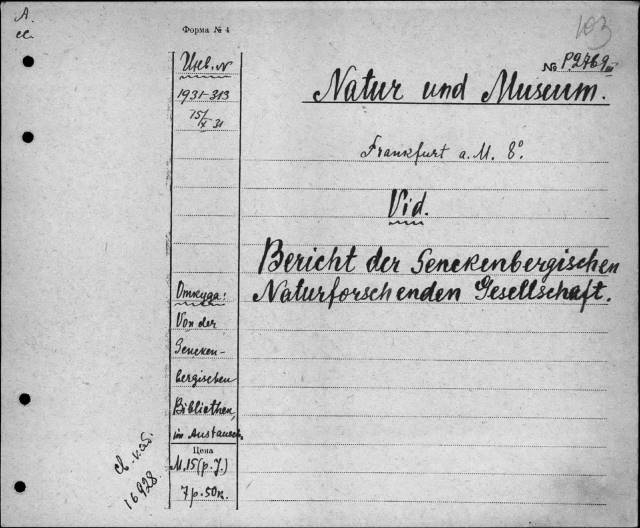 А.
Форма № 4
103
Инв. №
№ P.2769
1931-313
Natur und Museum.
15/X 31
Frankfurt a. M. 8°.
Vid.
Bericht der Senckenbergischen
Naturforschenden Gesellschaft.
Откуда:
Von der
Sencken-
bergischen
Bibliothek,
im Austausch.
Цена
M. 15 (p. J.)
7 р. 50 к.
16928